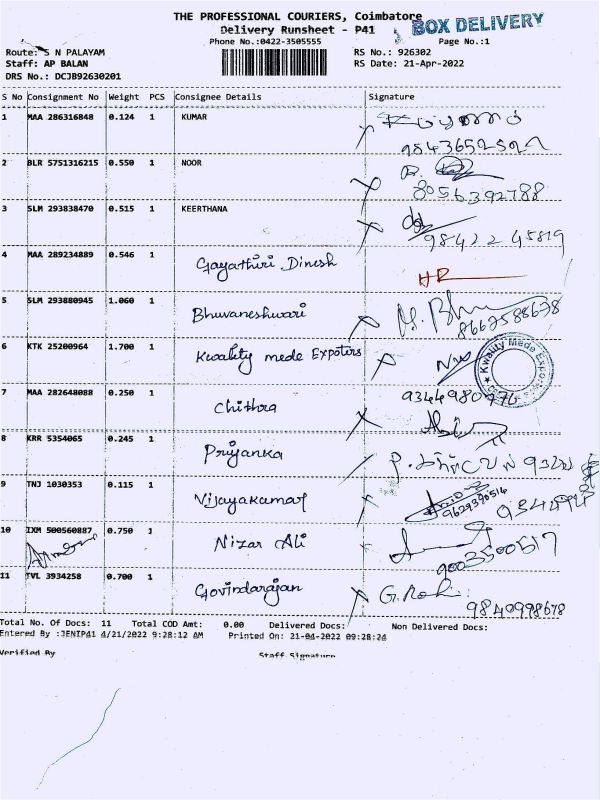 THE PROFESSIONAL COURIERS, Coimbatore
BOX DELIVERY
Delivery Runsheet - P41
Phone No.:0422-3505555
Page No.:1
Route: S N PALAYAM
RS No.: 926302
Staff: AP BALAN
RS Date: 21-Apr-2022
DRS No.: DCJB92630201
S No Consignment No Weight PCS Consignee Details Signature
1 MAA 286316848 0.124 1 KUMAR
2 BLR 5751316215 0.550 1 NOOR
8056392788
3 SLM 293838470 0.515 1 KEERTHANA
98422 45819
4 MAA 289234889 0.546 1 Gayathiri Dinesh
5 SLM 293880945 1.060 1 Bhuvaneshwari
8667588678
6 KTK 25200964 1.700 1 Kwality mede Expoters
Kwality Mede Exporters
7 MAA 282648088 0.250 1 Chithra
9344980776
8 KRR 5354065 0.245 1 Priyanka
9 TNJ 1030353 0.115 1 Vijayakumar
9629390514
10 IXM 500560887 0.750 1 Nizar Ali
9003500517
11 TVL 3934258 0.700 1 Govindarajan
9840998678
Total No. Of Docs: 11 Total COD Amt: 0.00 Delivered Docs: Non Delivered Docs:
Entered By :JENIP41 4/21/2022 9:28:12 AM Printed On: 21-04-2022 09:28:24
Verified By Staff Signature